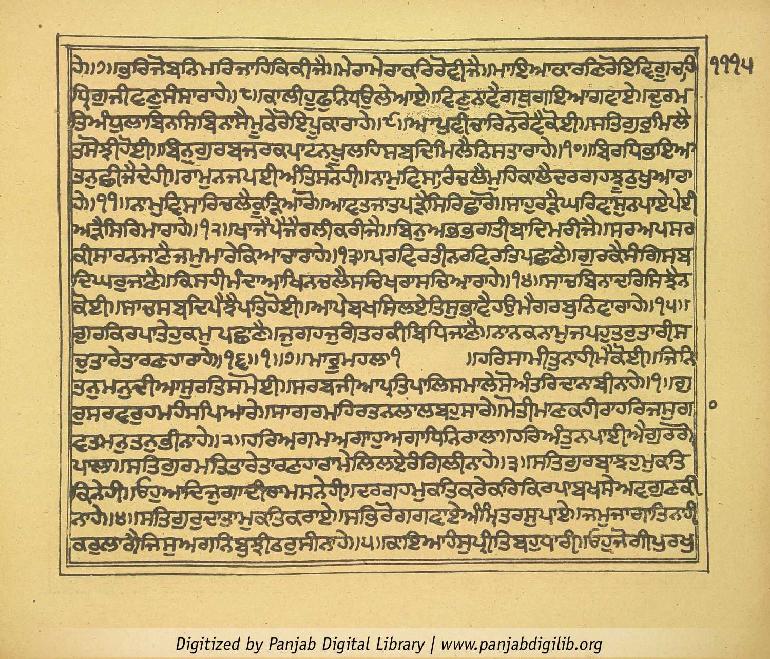 ਹੇ॥੭॥ਭਰਿਜੋਬਨਿਮਰਿਜਾਹਿਕਿਕੀਜੈ॥ਮੇਰਾਮੇਰਾਕਰਿਰੋਵੀਜੈ॥ਮਾਇਆਕਾਰਣਿਰੋਇਵਿਗੂਚਹਿ ੧੧੧੫
ਧ੍ਰਿਗੁਜੀਵਣੁਸੰਸਾਰਾਹੇ॥੮॥ਕਾਲੀਹੂਫੁਨਿਧਉਲੇਆਏ॥ਵਿਣੁਨਾਵੈਗਥੁਗਇਆਗਵਾਏ॥ਦੁਰਮ
ਤਿਅੰਧੁਲਾਬਿਨਸਿਬਿਨਾਸੈਮੂਠੇਰੋਇਪੂਕਾਰਾਹੇ॥੯॥ਆਪੁਵੀਚਾਰਿਨਰੋਵੈਕੋਈ॥ਸਤਿਗੁਰੁਮਿਲੈ
ਤਸੋਝੀਹੋਈ॥ਬਿਨੁਗੁਰਬਜਰਕਪਾਟਨਖੂਲਹਿਸਬਦਿਮਿਲੈਨਿਸਤਾਰਾਹੇ॥੧੦॥ਬਿਰਧਿਭਇਆ
ਤਨੁਛੀਜੈਦੇਹੀ॥ਰਾਮੁਨਜਪਈਅੰਤਿਸਨੇਹੀ॥ਨਾਮੁਵਿਸਾਰਿਚਲੈਮੁਹਿਕਾਲੈਦਰਗਹਝੂਠੁਖੁਆਰਾ
ਹੇ॥੧੧॥ਨਾਮੁਵਿਸਾਰਿਚਲੈਕੂੜਿਆਰੋ॥ਆਵਤਜਾਤਪੜੈਸਿਰਿਛਾਰੋ॥ਸਾਹੁਰੜੈਘਰਿਵਾਸੁਨਪਾਏਪੇਈ
ਅੜੈਸਿਰਿਮਾਰਾਹੇ॥੧੨॥ਖਾਜੈਪੈਝੈਰਲੀਕਰੀਜੈ॥ਬਿਨੁਅਭਭਗਤੀਬਾਦਿਮਰੀਜੈ॥ਸਰਅਪਸਰ
ਕੀਸਾਰਨਜਾਣੈਜਮੁਮਾਰੇਕਿਆਚਾਰਾਹੇ॥੧੩॥ਪਰਵਿਰਤੀਨਰਵਿਰਤਿਪਛਾਣੈ॥ਗੁਰਕੈਸੰਗਿਸਬ
ਦਿਘਰੁਜਾਣੈ॥ਕਿਸਹੀਮੰਦਾਆਖਿਨਚਲੈਸਚਿਖਰਾਸਚਿਆਰਾਹੇ॥੧੪॥ਸਾਚਬਿਨਾਦਰਿਸਿਝੈਨ
ਕੋਈ॥ਸਾਚਸਬਦਿਪੈਝੈਪਤਿਹੋਈ॥ਆਪੇਬਖਸਿਲਏਤਿਸੁਭਾਵੈਹਉਮੈਗਰਬੁਨਿਵਾਰਾਹੇ॥੧੫॥
ਗੁਰਕਿਰਪਾਤੇਹੁਕਮੁਪਛਾਣੈ॥ਜੁਗਹਜੁਗੰਤਰਕੀਬਿਧਿਜਾਣੈ॥ਨਾਨਕਨਾਮੁਜਪਹੁਤਰੁਤਾਰੀਸ
ਚੁਤਾਰੇਤਾਰਣਹਾਰਾਹੇ॥੧੬॥੧॥੭॥ਮਾਰੂਮਹਲਾ੧ ॥ਹਰਿਸਾਮੀਤੁਨਾਹੀਮੈਕੋਈ॥ਜਿਨਿ
ਤਨੁਮਨੁਦੀਆਸੁਰਤਿਸਮੋਈ॥ਸਰਬਜੀਆਪ੍ਰਤਿਪਾਲਿਸਮਾਲੇਸੋਅੰਤਰਿਦਾਨਾਬੀਨਾਹੇ॥੧॥ਗੁ
ਰੁਸਰਵਰੁਹਮਹੰਸਪਿਆਰੇ॥ਸਾਗਰਮਹਿਰਤਨਲਾਲਬਹੁਸਾਰੇ॥ਮੋਤੀਮਾਣਕਹੀਰਾਹਰਿਜਸੁਗਾ
ਵਤਮਨੁਤਨੁਭੀਨਾਹੇ॥੨॥ਹਰਿਅਗਮਅਗਾਹੁਅਗਾਧਿਨਿਰਾਲਾ॥ਹਰਿਅੰਤੁਨਪਾਈਐਗੁਰਗੋ
ਪਾਲਾ॥ਸਤਿਗੁਰਮਤਿਤਾਰੇਤਾਰਣਹਾਰਾਮੇਲਿਲਏਰੰਗਿਲੀਨਾਹੇ॥੩॥ਸਤਿਗੁਰਬਾਝਹੁਮੁਕਤਿ
ਕਿਨੇਹੀ॥ਓਹੁਆਦਿਜੁਗਾਦੀਰਾਮਸਨੇਹੀ॥ਦਰਗਹਮੁਕਤਿਕਰੇਕਰਿਕਿਰਪਾਬਖਸੇਅਵਗੁਣਕੀ
ਨਾਹੇ॥੪॥ਸਤਿਗੁਰੁਦਾਤਾਮੁਕਤਿਕਰਾਏ॥ਸਭਿਰੋਗਗਵਾਏਅੰਮ੍ਰਿਤਰਸੁਪਾਏ॥ਜਮੁਜਾਗਾਤਿਨਾਹੀ
ਕਰੁਲਾਗੈਜਿਸੁਅਗਨਿਬੁਝੀਠਰੁਸੀਨਾਹੇ॥੫॥ਕਾਇਆਹੰਸਪ੍ਰੀਤਿਬਹੁਧਾਰੀ॥ਓਹੁਜੋਗੀਪੁਰਖੁ
Digitized by Panjab Digital Library | www.panjabdigilib.org